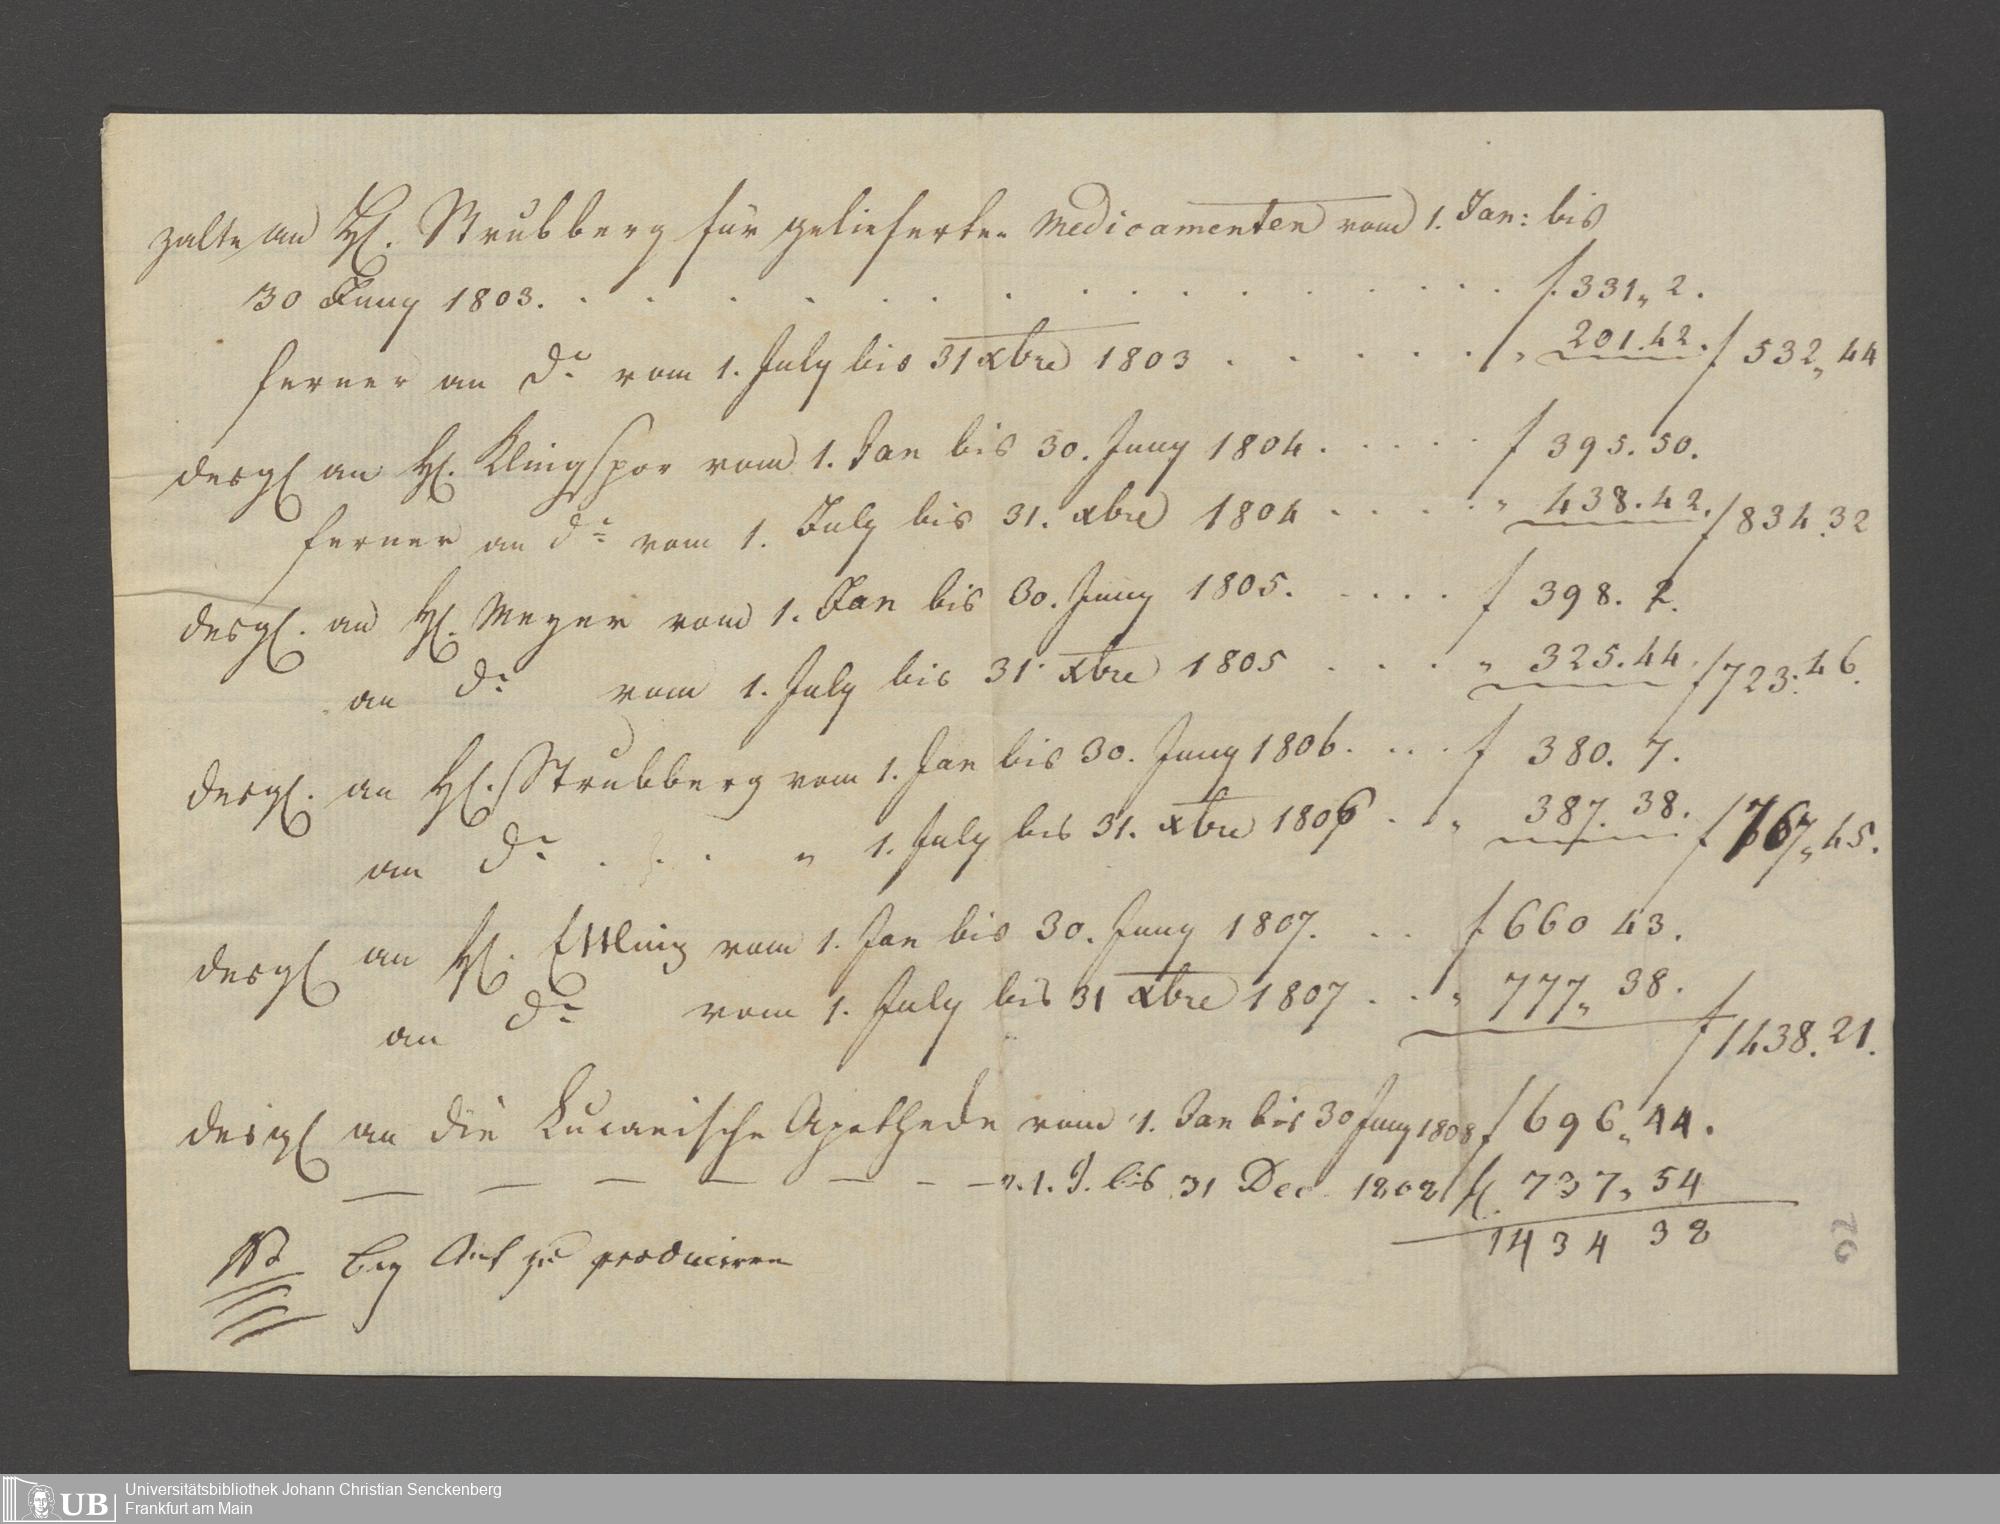 zalte an H. Strubberg für gelieferte Medicamenten vom 1. Jan: bis
30 Juny 1803. . . . . . . . . . . . . f. 331 „ 2.
ferner an do vom 1. July bis 31 Xbre 1803 . . . . . „ 201.42. f 532 „ 44
desgl an H. Klingspor vom 1. Jan bis 30. Juny 1804 . . . . . f 395.50.
ferner an do vom 1. July bis 31. Xbre 1804 . . . . „ 438.42. f 834.32
desgl. an H. Meyer vom 1. Jan bis 30. Juny 1805. . . . . f 398. 2.
an do vom 1. July bis 31. Xbre 1805 . . . „ 325.44. f 723.46.
desgl. an H. Strubberg vom 1. Jan bis 30. Juny 1806. . . . f 380. 7.
an do . . . „ 1. July bis 31. Xbre 1806 . . „ 387. 38. f 767 „ 45.
desgl an H. Ettling vom 1. Jan bis 30. Juny 1807. . . f 660 43.
an do vom 1. July bis 31 Xbre 1807 . . „ 777 „ 38.
f 1438.21.
desgl an die Lucaeische Apothecke vom 1. Jan bis 30 Juny 1808 f 696 „ 44.
— — — — — — — v. 1. J. bis 31 Dec. 1808 f. 737 „ 54
1434 38
NB bey Amt zu produciren
20
UB
Universitätsbibliothek Johann Christian Senckenberg
Frankfurt am Main